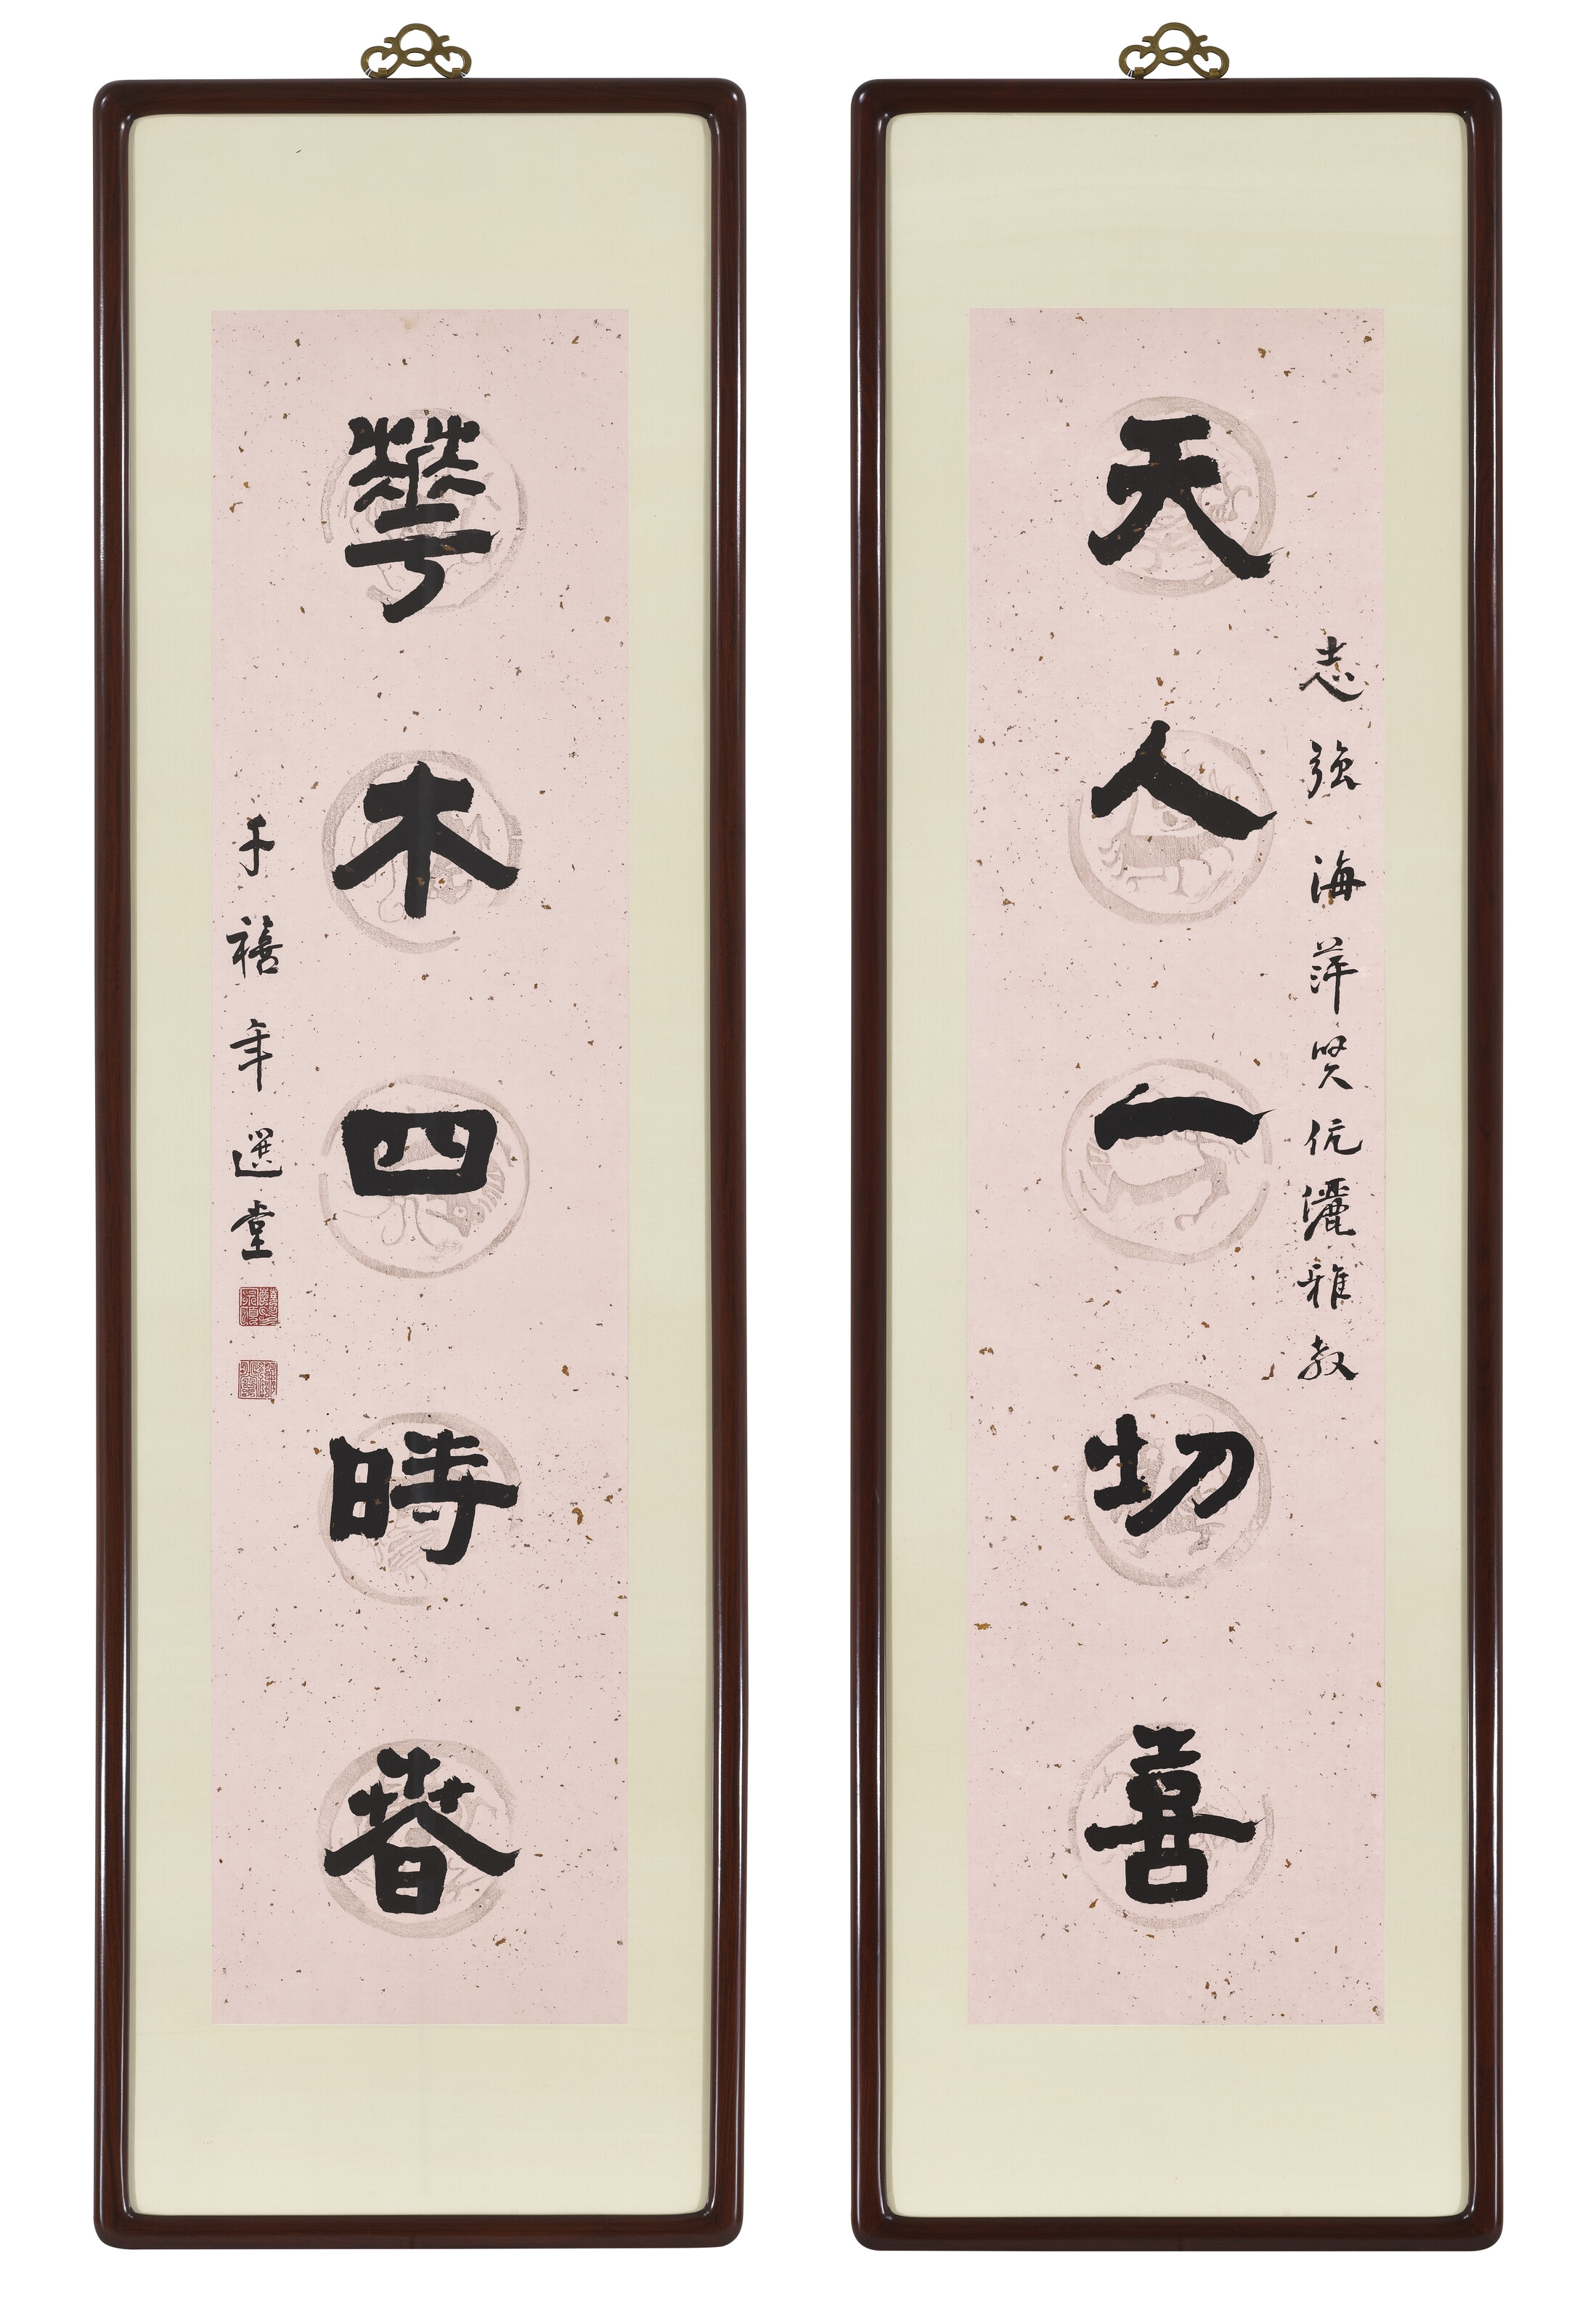 天人一切喜
志強海萍賢伉儷雅教
華木四時春
千禧年選堂